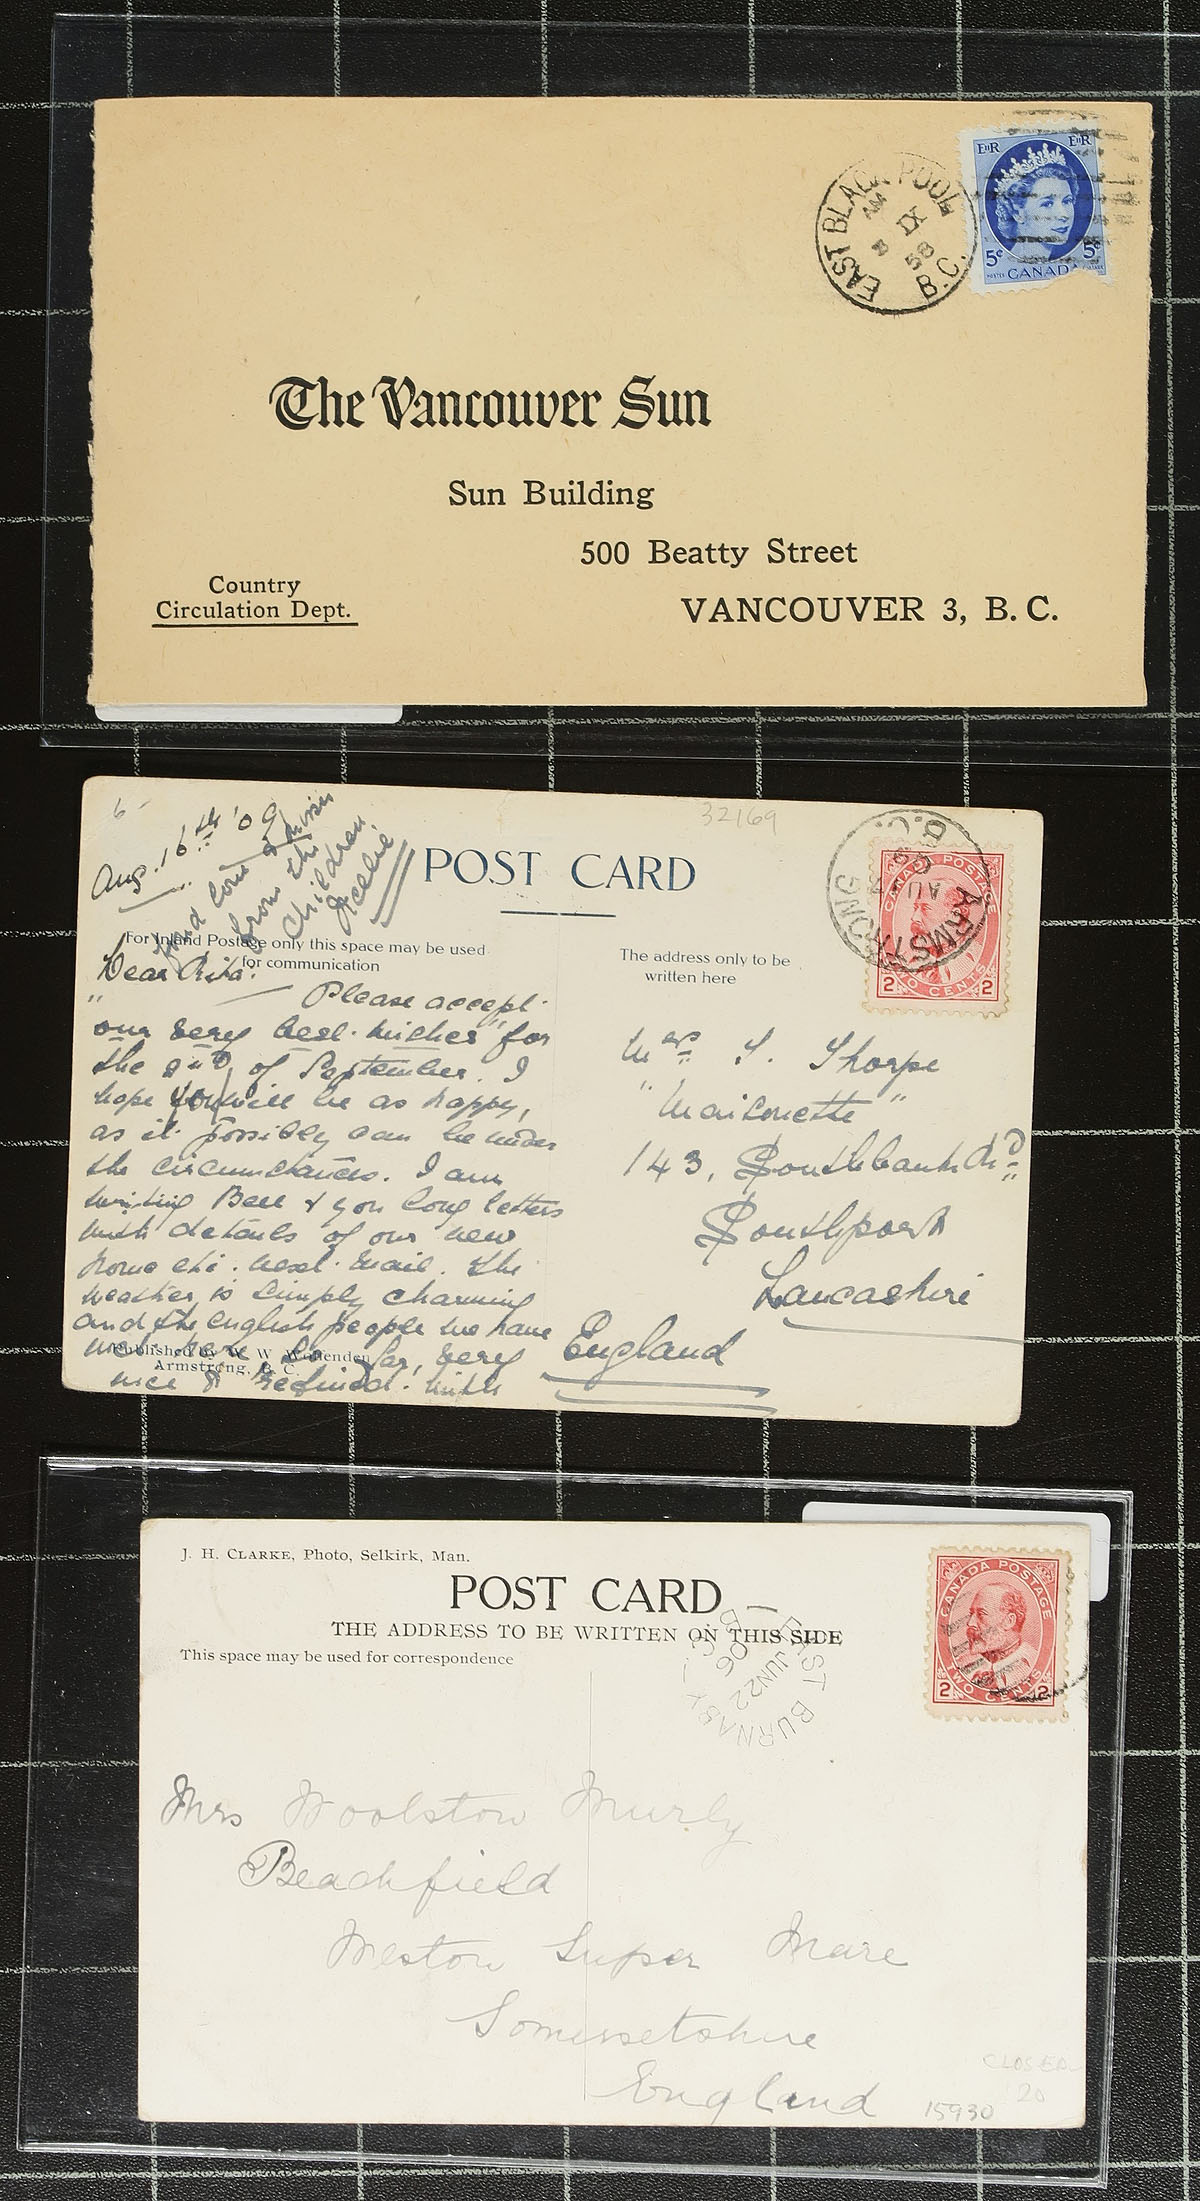 EAST BLACK POOL
AM
8 IX
58
B.C.
EIIR EIIR
5¢ 5¢
POSTES CANADA POSTAGE
The Vancouver Sun
Sun Building
500 Beatty Street
Country
Circulation Dept.
VANCOUVER 3, B. C.
6-
32169
Aug. 16th '09
fond love & kisses
from the
children
Nellie
POST CARD
ARMSTRONG
AU
09
B.C.
CANADA POSTAGE
2 TWO CENTS 2
For Inland Postage only this space may be used
for communication
The address only to be
written here
Dear Rita.
Please accept
"our very best wishes" for
the 2nd of September. I
hope you will be as happy,
as it possibly can be under
the circumstances. I am
writing Bell & you long letters
with details of our new
home etc. next mail. The
weather is simply charming
and the english people we have
met here so far, very
nice & refined. with
Published by W. W.
Armstrong, B. C.
Mrs. S. Thorpe
"Maisonette"
143, Southbank Rd.
Southport
Lancashire
England
J. H. CLARKE, Photo, Selkirk, Man.
POST CARD
THE ADDRESS TO BE WRITTEN ON THIS SIDE
This space may be used for correspondence
EAST BURNABY
JUN 22
06
B.C.
CANADA POSTAGE
2 TWO CENTS 2
Mrs Woolston Murly
Beachfield
Weston Super Mare
Somersetshire
England
CLOSED
20
15930